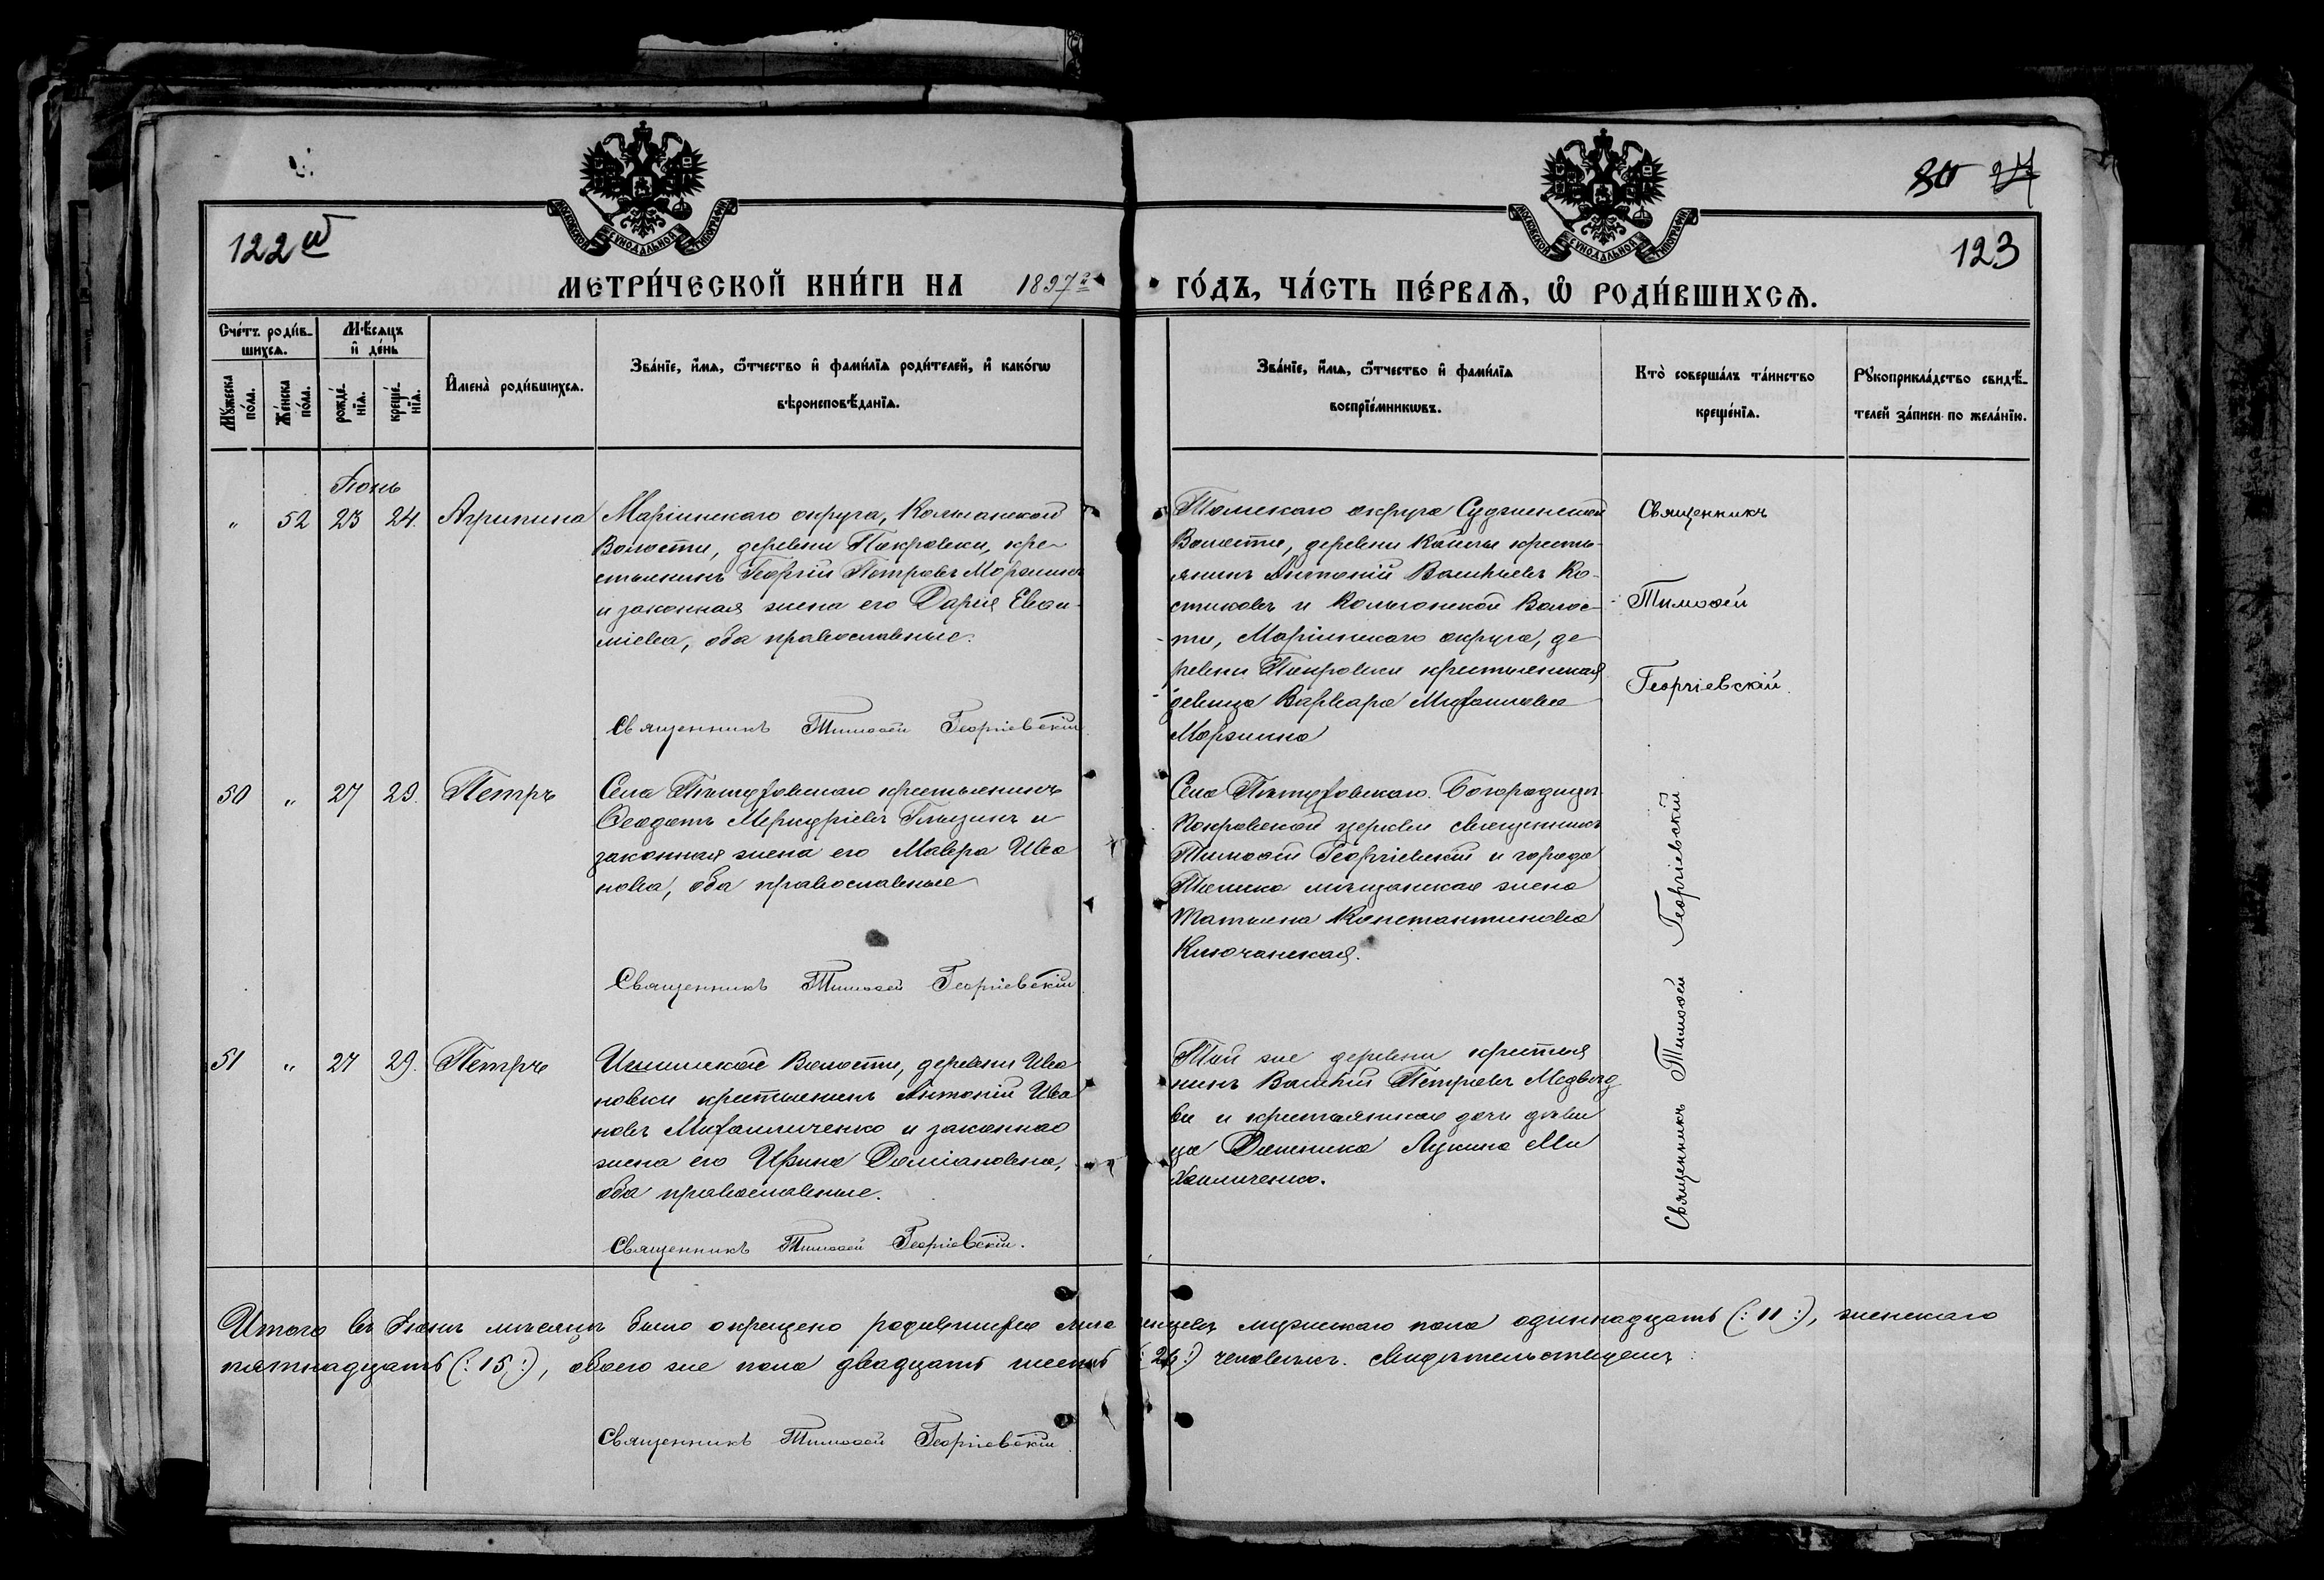 80 24
122 об
123
МОСКОВСКОЙ СѴНОДАЛЬНОЙ ТИПОГРАФІИ
МОСКОВСКОЙ СѴНОДАЛЬНОЙ ТИПОГРАФІИ
МЕТРИ́ЧЕСКОЙ КНИ́ГИ НА 1897 г.
ГО́ДЪ, ЧА́СТЬ ПЕ́РВАѦ, Ѡ҆ РОДИ́ВШИХСѦ.
Сче́тъ роди́в-
шихсѧ.
Мꙋ́жеска по́ла.
Же́нска по́ла.
Мѣ́сѧцъ
и҆ де́нь
рожде́-нїѧ.
креще́-нїѧ.
И҆мена̀ роди́вшихсѧ.
Зва́нїе, и҆́мѧ, ѻ҆́тчество и҆ фами́лїѧ роди́телей, и҆ како́гѡ
вѣроисповѣ́данїѧ.
Зва́нїе, и҆́мѧ, ѻ҆́тчество и҆ фами́лїѧ
воспрїе́мникѡвъ.
Кто̀ соверша́лъ та́инство
креще́нїѧ.
Рꙋкоприкла́дство свидѣ́-
телей за́писи по жела́нїю.
Іюнь
„ 52 23 24. Агрипина
Маріинскаго округа, Колыонской
Волости, деревни Покровки, кре-
стьянинъ Георгій Петровъ Моржинъ
и законная жена его Дарія Евѳи-
міева, оба православные.
Священникъ Тимоѳей Георгіевскій
Томскаго округа Судженской
Волости, деревни Кайлы кресть-
янинъ Антоній Васильевъ Ко-
стиковъ и Колыонской Волос-
ти, Маріинскаго округа, де
ревни Покровки крестьянская
девица Варвара Михаилова
Моржина
Священникъ
Тимоѳей
Георгіевскій.
50 „ 27 29. Петръ
Села Пѣтуховскаго крестьянинъ
Ѳеодотъ Меркуріевъ и
законная жена его Мавра Ива
нова, оба православные
Священникъ Тимоѳей Георгіевскій
Села Пѣтуховскаго Богородице-
Покровской церкви священникъ
Тимоѳей Георгіевскій и города
Томска мѣщанская жена
Татьяна Константинова
Ключанская.
51 „ 27 29. Петръ
Ишимской Волости, деревни Ива
новки крестьянинъ Антоній Ива
новъ Михаиличенко и законная
жена его Ирина Даміановна,
оба православные.
Священникъ Тимоѳей Георгіевскій.
Той же деревни крестья
нинъ Василій Петровъ Медвед
ев и крестьянская дочь дѣви
ца Домника Лукина Ми
хаиличенко.
Священникъ Тимоѳей Георгіевскій.
Итого въ Іюнѣ мѣсяцѣ было окрещено родившихся младенцевъ мужескаго пола одиннадцать (: 11 :), женскаго
пятнадцать (: 15 :), обоего же пола двадцать шесть (: 26 :) человѣкъ. свидѣтельствуемъ:
Священникъ Тимоѳей Георгіевскій.